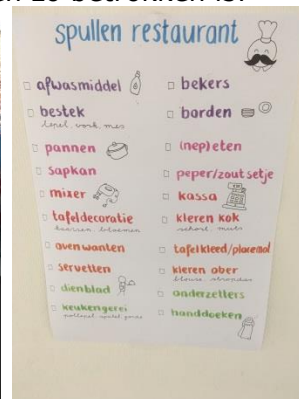 spullen restaurant
afwasmiddel
bestek
lepel, vork, mes
pannen
sapkan
mixer
tafeldecoratie
kaarsen, bloemen
ovenwanten
servetten
dienblad
keukengerei
bekers
borden
(nep)eten
peper/zout setje
kassa
kleren kok
schort, muts
tafelkleed/placemat
kleren ober
onderzetters
handdoeken